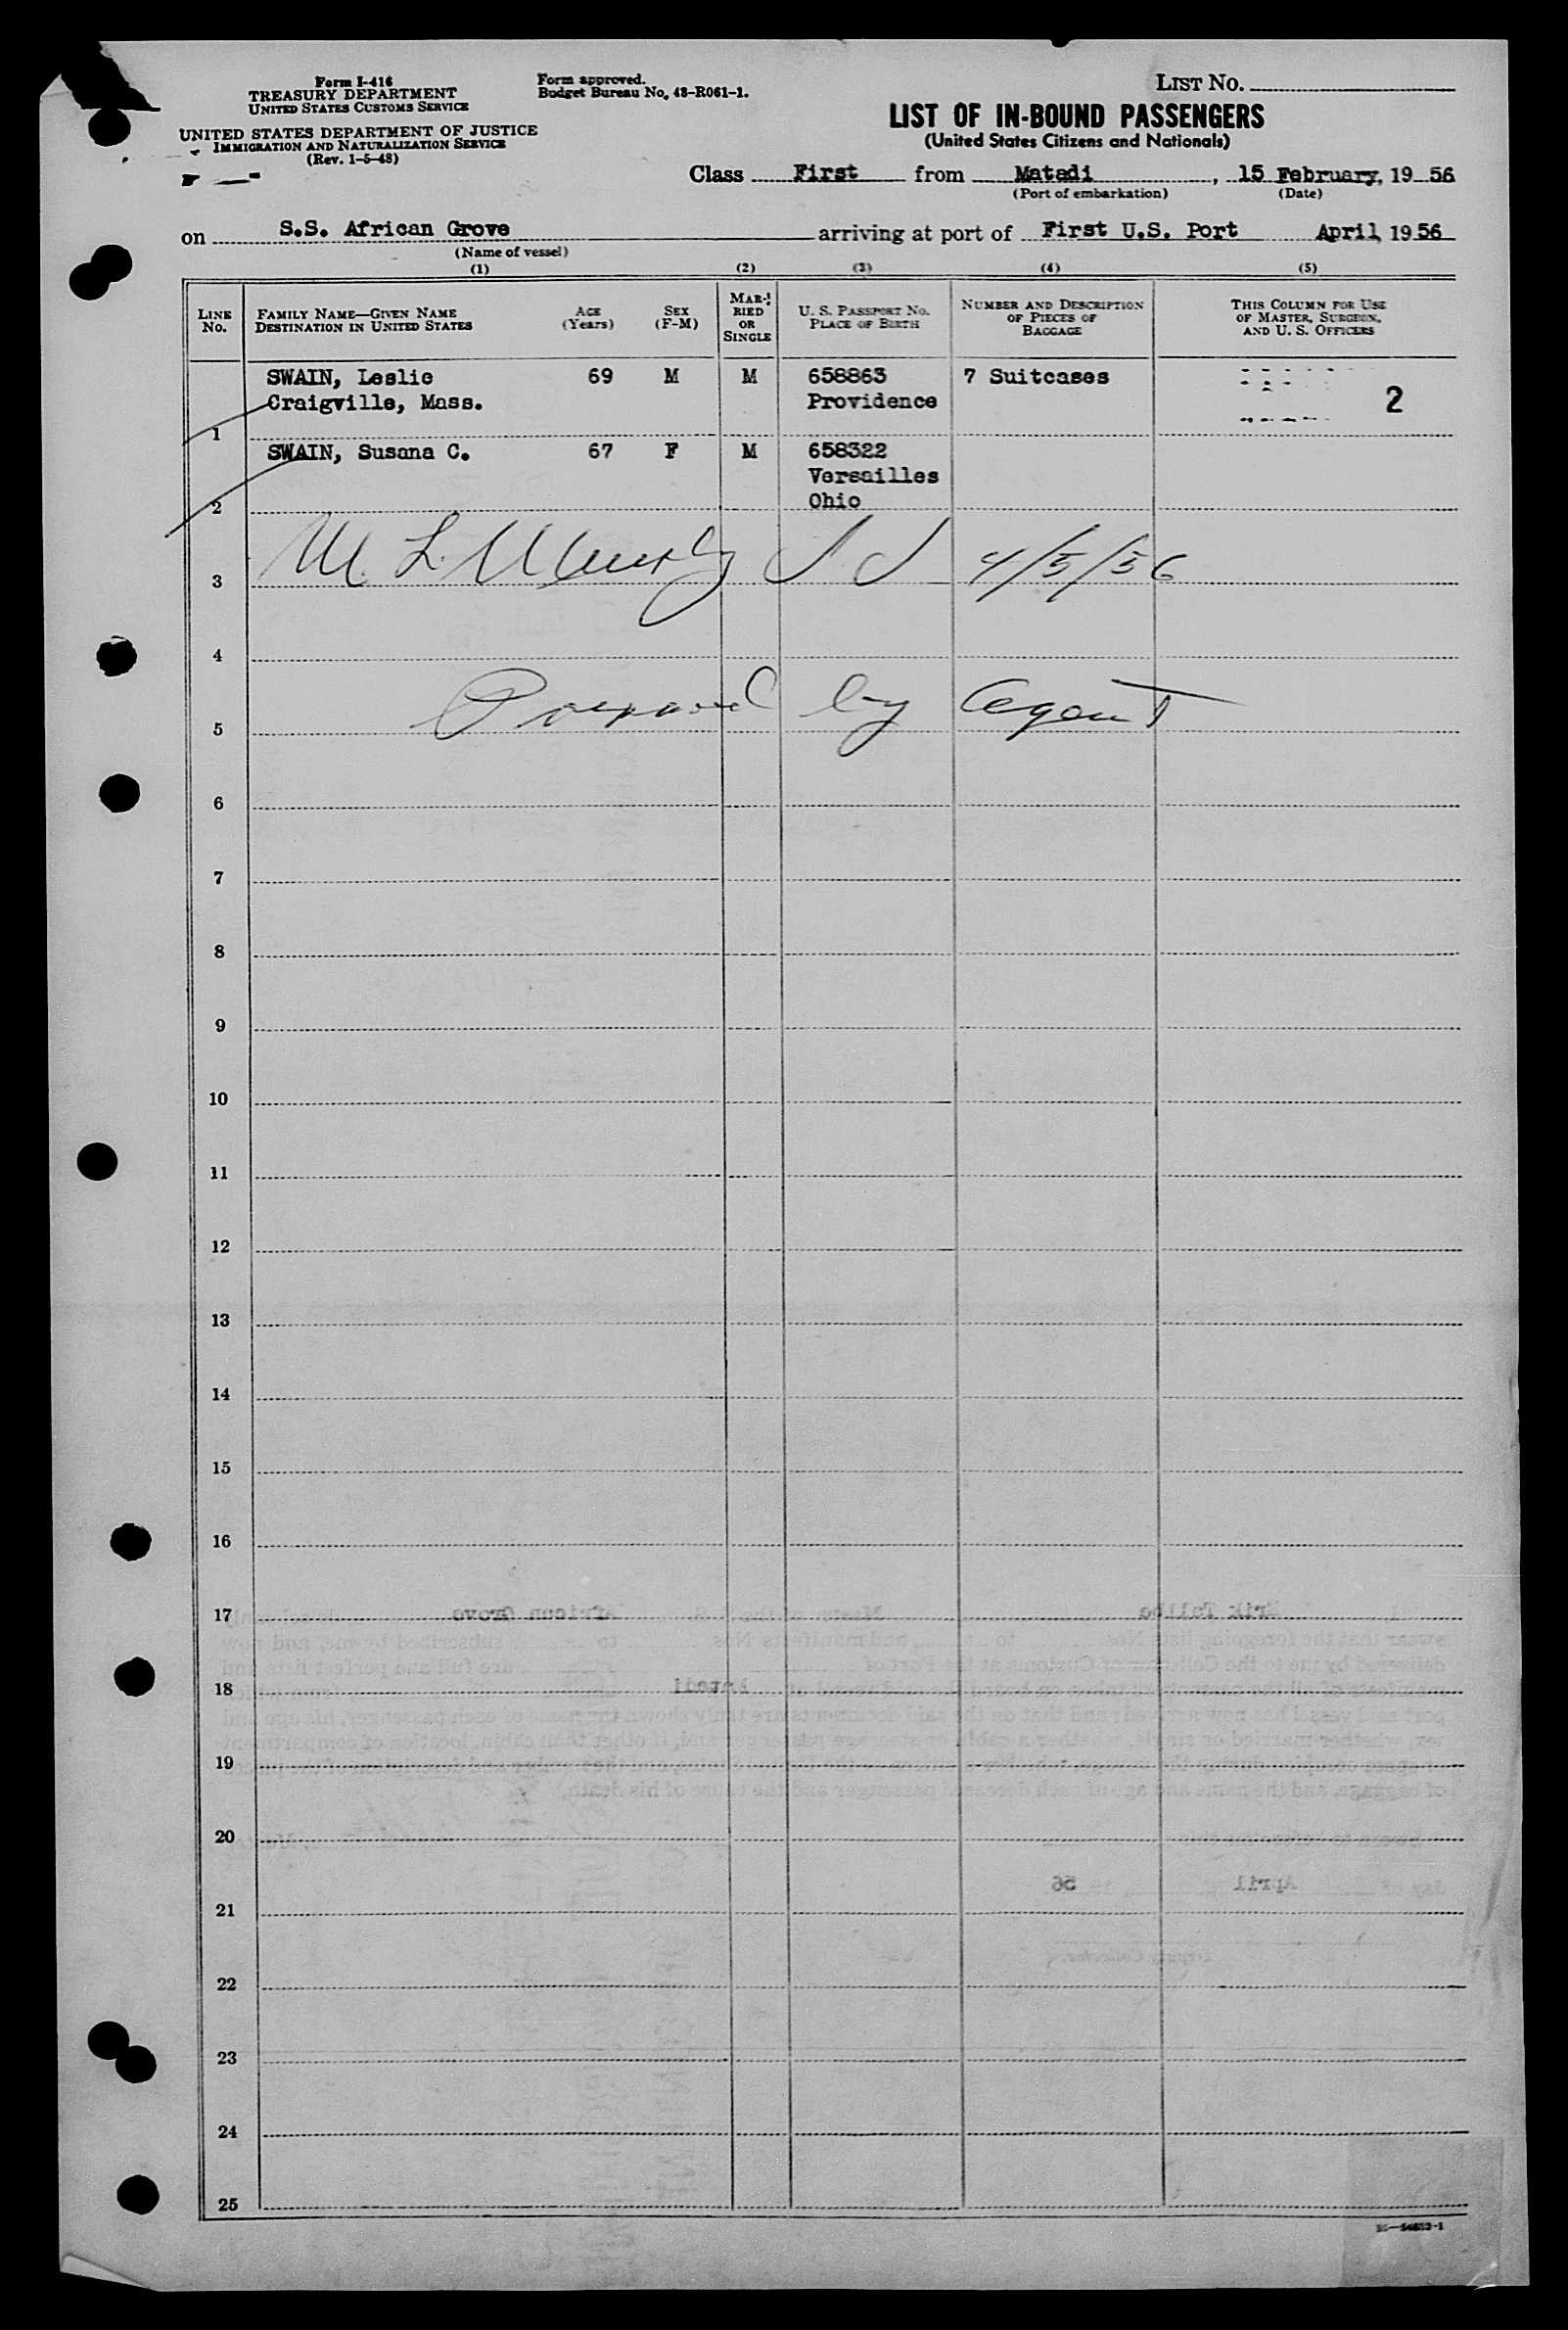 Form I-416
TREASURY DEPARTMENT
UNITED STATES CUSTOMS SERVICE
UNITED STATES DEPARTMENT OF JUSTICE
IMMIGRATION AND NATURALIZATION SERVICE
(Rev. 1-5-48)
Form approved.
Budget Bureau No. 43-R061-1.
LIST NO.
LIST OF IN-BOUND PASSENGERS
(United States Citizens and Nationals)
Class First from Matadi, 15 February, 19 56
(Port of embarkation) (Date)
on S.S. African Grove arriving at port of First U.S. Port April 19 56
(Name of vessel)
(1) (2) (3) (4) (5)
LINE NO. FAMILY NAME—GIVEN NAME DESTINATION IN UNITED STATES AGE (Years) SEX (F-M) MARRIED OR SINGLE U. S. PASSPORT NO. PLACE OF BIRTH NUMBER AND DESCRIPTION OF PIECES OF BAGGAGE THIS COLUMN FOR USE OF MASTER, SURGEON, AND U. S. OFFICERS
SWAIN, Leslie 69 M M 658863 7 Suitcases
Craigville, Mass. Providence 2
1
SWAIN, Susana C. 67 F M 658322
Versailles
2 Ohio
M. L. 4/5/56
3
4
Prepared by Agent
5
6
7
8
9
10
11
12
13
14
15
16
17
18
19
20
21
22
23
24
25